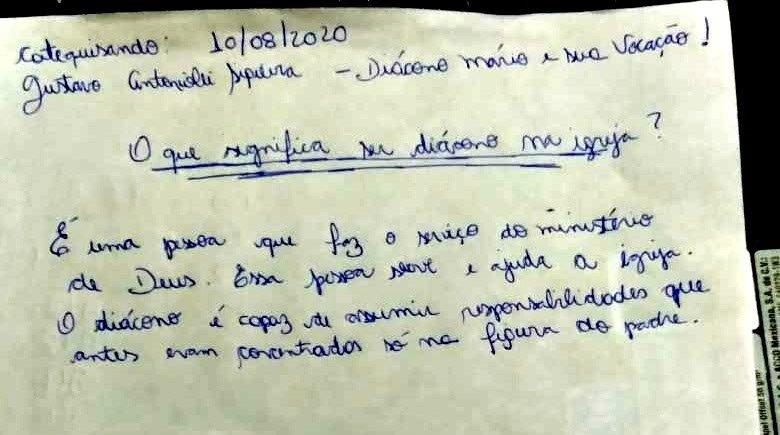 Catequisando: 10/08/2020
Gustavo Antonioli - Diácono mário e sua Vocação!
O que significa ser diácono na igreja?
É uma pessoa que faz o serviço do ministério
de Deus. Essa pessoa serve e ajuda a igreja.
O diácono é capaz de assumir responsabilidades que
antes eram concentradas só na figura do padre.